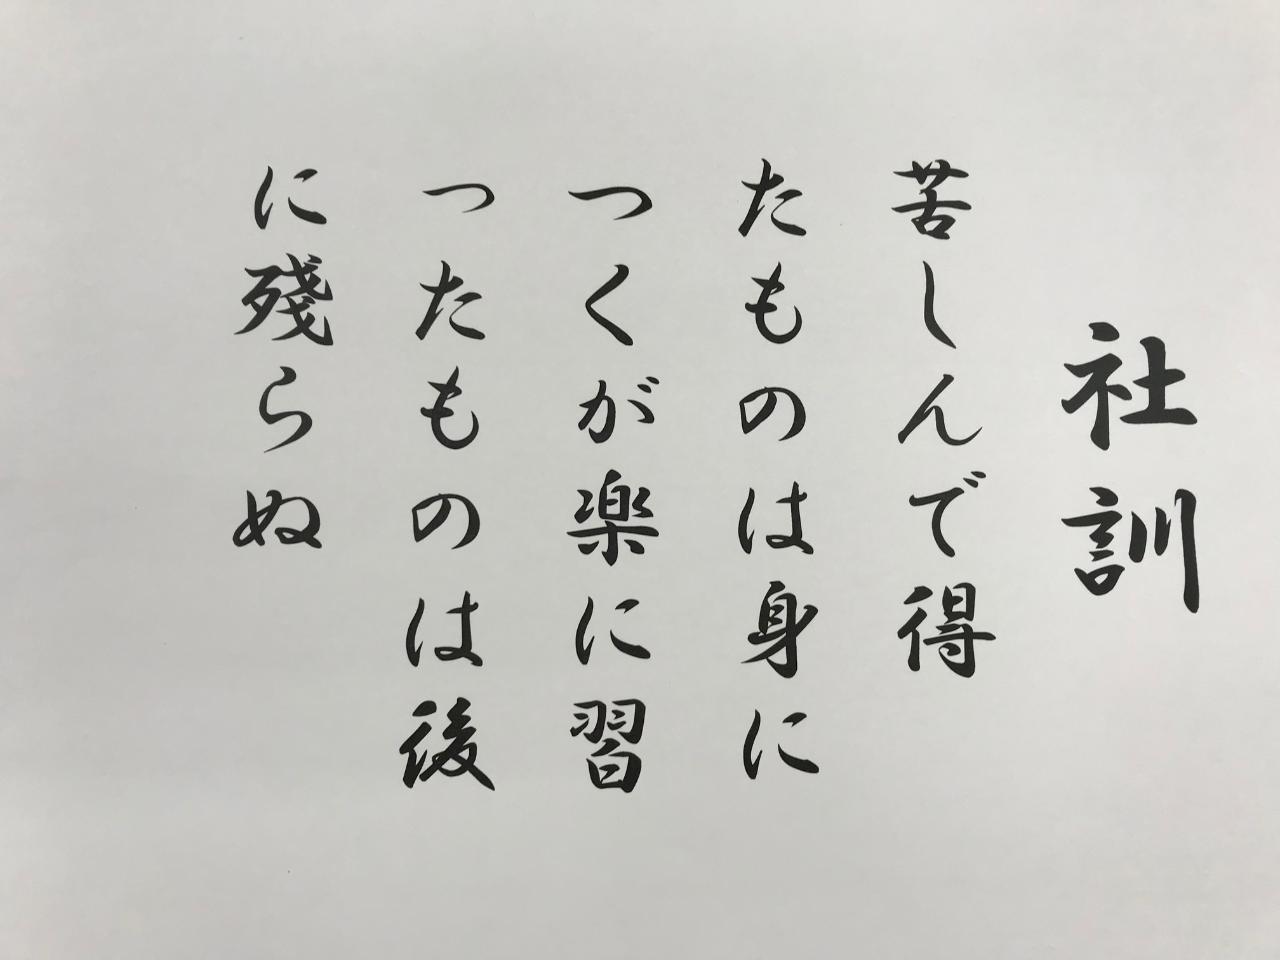 社訓
苦しんで得
たものは身に
つくが楽に習
ったものは後
に殘らぬ